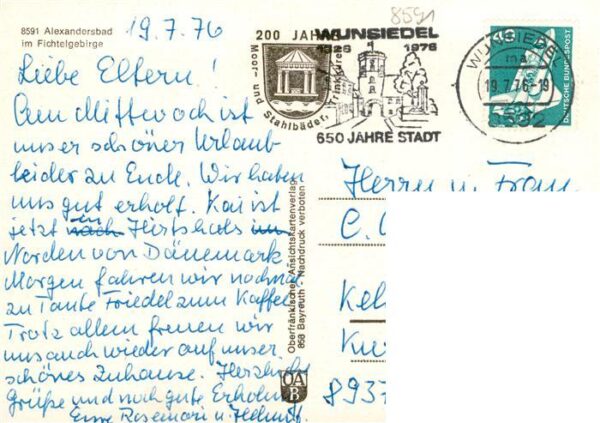 8591 Alexandersbad
im Fichtelgebirge
19.7.76
8591
200 JAHRE
Moor- und Stahlbäder, Trinkkuren
WUNSIEDEL
1326 1976
650 JAHRE STADT
WUNSIEDEL
ma
19.7.76-19
8592
DEUTSCHE BUNDESPOST
Liebe Eltern!
Am Mittwoch ist
unser schöner Urlaub
leider zu Ende. Wir haben
uns gut erholt. Kai ist
jetzt nach in Hirtshals im
Norden von Dänemark
Morgen fahren wir nochmal
zu Tante Friedel zum Kaffee
Trotz allem freuen wir
uns auch wieder auf unser
schönes Zuhause. Herzliche
Grüße und noch gute Erholung
Eure Rosemari u. Helmut.
Oberfränkischer Ansichtskartenverlag
858 Bayreuth - Nachdruck verboten
OA
B
Herrn u. Frau
C.
Kel
Ku
8937